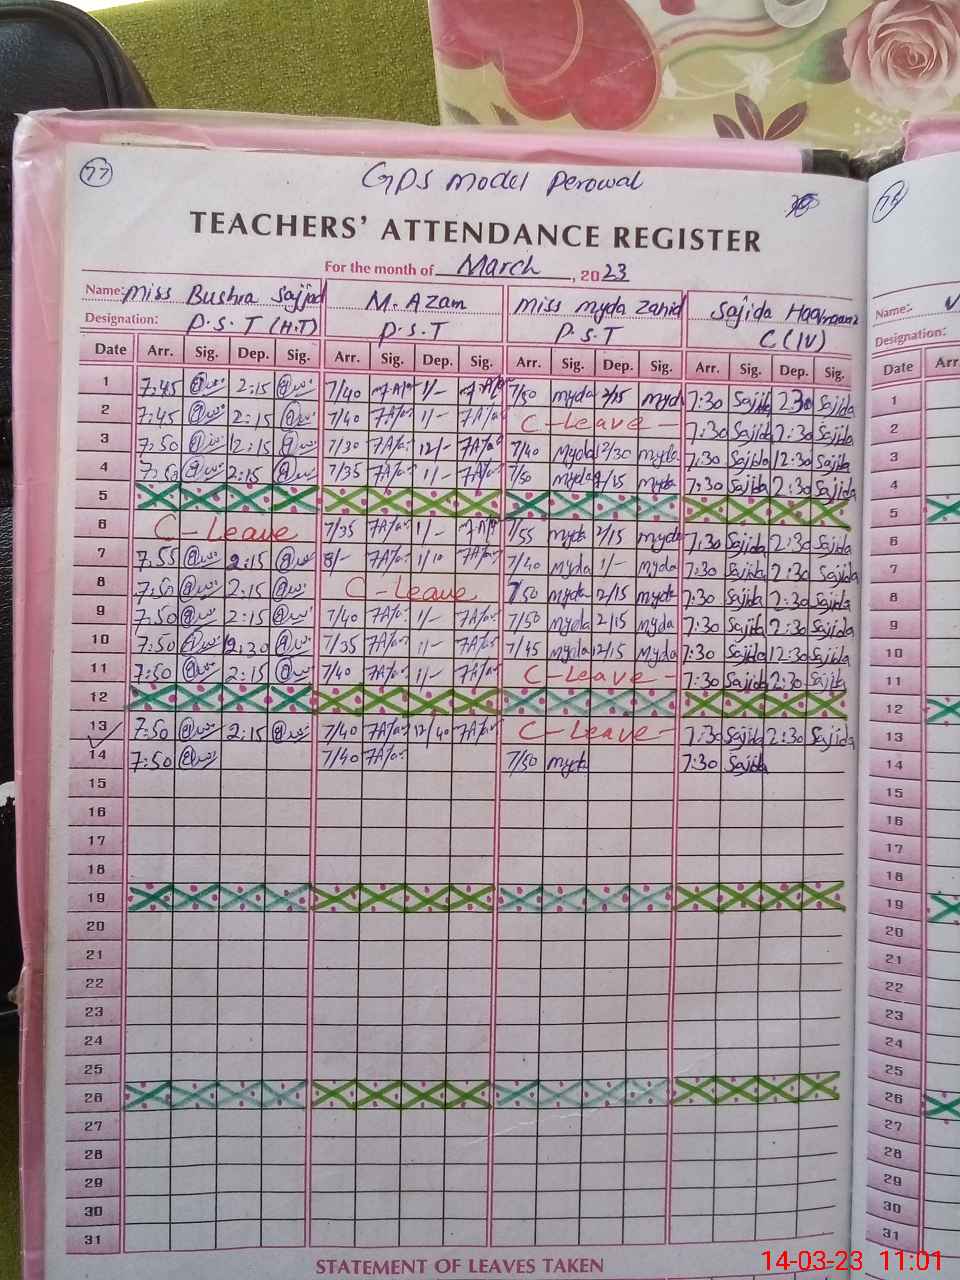 77
GPS model perowal
TEACHERS' ATTENDANCE REGISTER
For the month of March, 2023
Name: Miss Bushra Sajjad M. Azam Miss myda zahid Sajida
Designation: P.S.T (H.T) P.S.T P.S.T C (IV)
Date Arr. Sig. Dep. Sig. Arr. Sig. Dep. Sig. Arr. Sig. Dep. Sig. Arr. Sig. Dep. Sig.
1 7:45 2:15 7/40 1/- 7/50 myda 2/15 myd 7:30 Sajida 2:30 Sajida
2 7:45 2:15 7/40 1/- C-Leave- 7:30 Sajida 2:30 Sajida
3 7:50 12:15 7/30 12/- 7/40 myda 12/30 myda 7:30 Sajida 12:30 Sajida
4 7:50 2:15 7/35 1/- 7/50 myda 2/15 myda 7:30 Sajida 2:30 Sajida
5
6 C-Leave 7/35 1/- 7/55 myda 2/15 myda 7:30 Sajida 2:30 Sajida
7 7:55 2:15 8/- 1/10 7/40 myda 1/- myda 7:30 Sajida 2:30 Sajida
8 7:50 2:15 C-Leave 7/50 myda 2/15 myda 7:30 Sajida 2:30 Sajida
9 7:50 2:15 7/40 1/- 7/50 myda 2/15 myda 7:30 Sajida 2:30 Sajida
10 7:50 12:30 7/35 1/- 7/45 myda 12/15 myda 7:30 Sajida 12:30 Sajida
11 7:50 2:15 7/40 1/- C-Leave- 7:30 Sajida 2:30 Sajida
12
13 7:50 2:15 7/40 12/40 C-Leave- 7:30 Sajida 2:30 Sajida
14 7:50 7/40 7/50 myda 7:30 Sajida
15
16
17
18
19
20
21
22
23
24
25
26
27
28
29
30
31
STATEMENT OF LEAVES TAKEN
Name:
Designation:
Date Arr
1
2
3
4
5
6
7
8
9
10
11
12
13
14
15
16
17
18
19
20
21
22
23
24
25
26
27
28
29
30
31
14-03-23 11:01